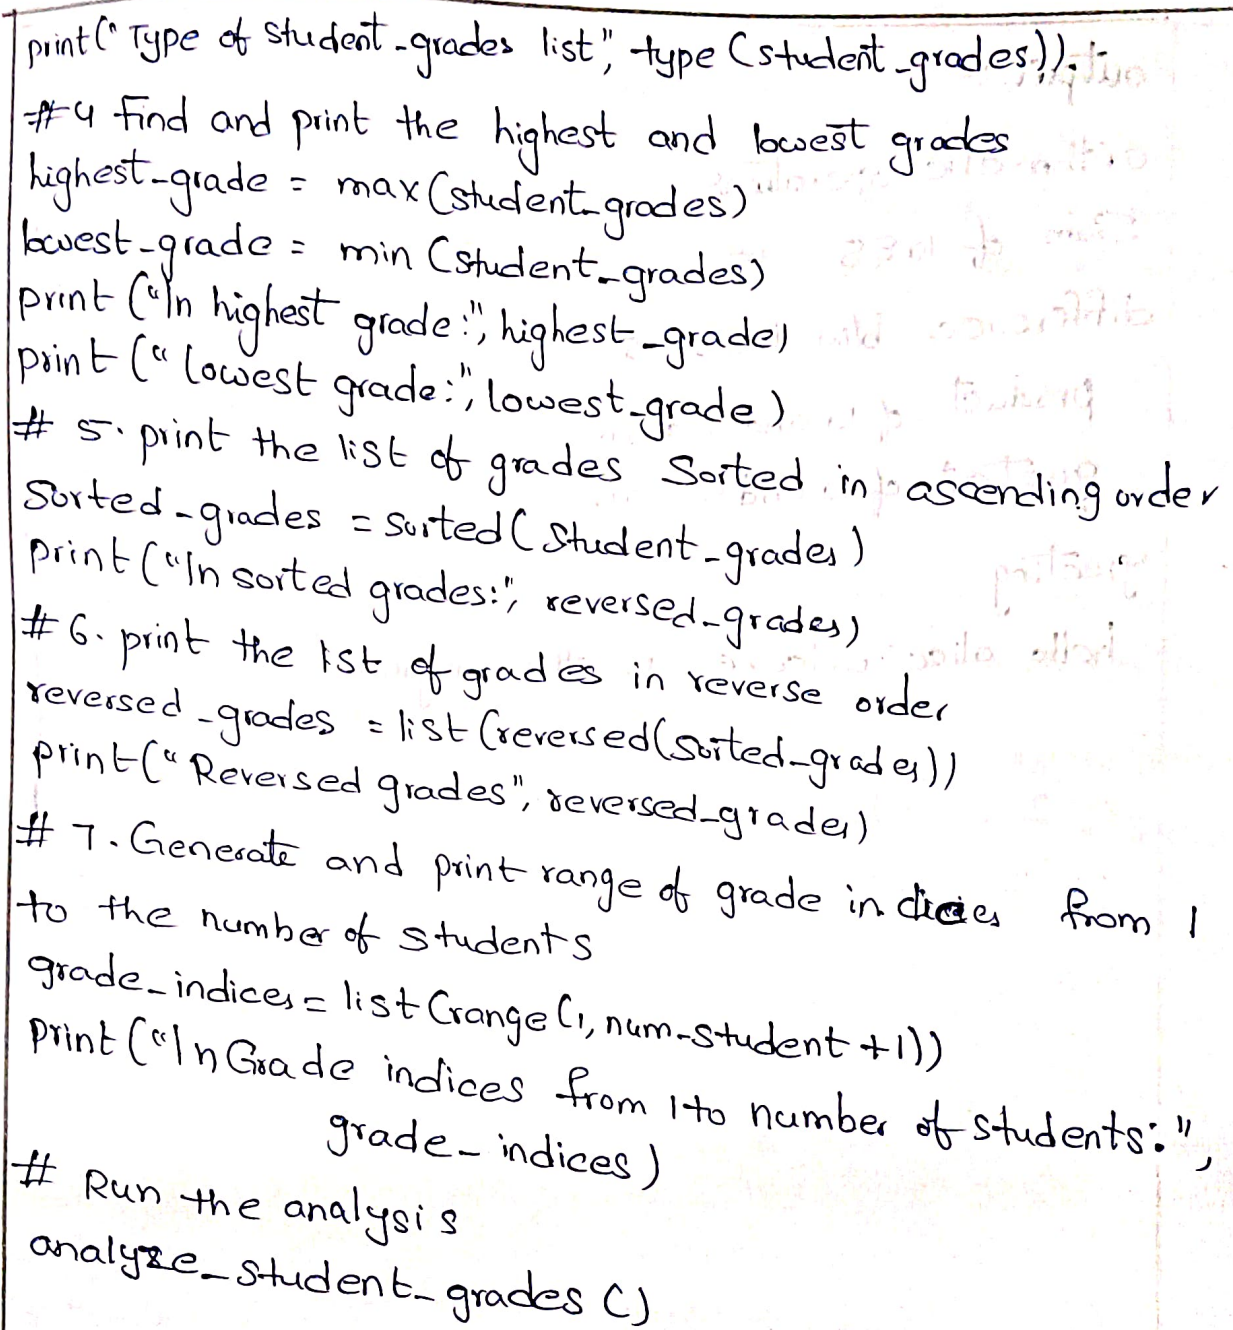 print(" Type of student_grades list", type (student_grades)).
#4 Find and print the highest and lowest grades
highest_grade = max(student_grades)
lowest_grade = min (student_grades)
print ("\n highest grade:", highest_grade)
print (" lowest grade:", lowest_grade)
# 5. print the list of grades Sorted in ascending order
Sorted_grades = sorted( student_grades)
print("\n sorted grades:", reversed_grades)
# 6. print the list of grades in reverse order
reversed_grades = list (reversed(sorted_grades))
print(" Reversed grades", reversed_grades)
# 7. Generate and print range of grade indicies from 1
to the number of students
grade_indices = list (range(1, num-student +1))
print ("\n Grade indices from 1 to number of students:",
grade_indices)
# Run the analysis
analyze_student_grades ()